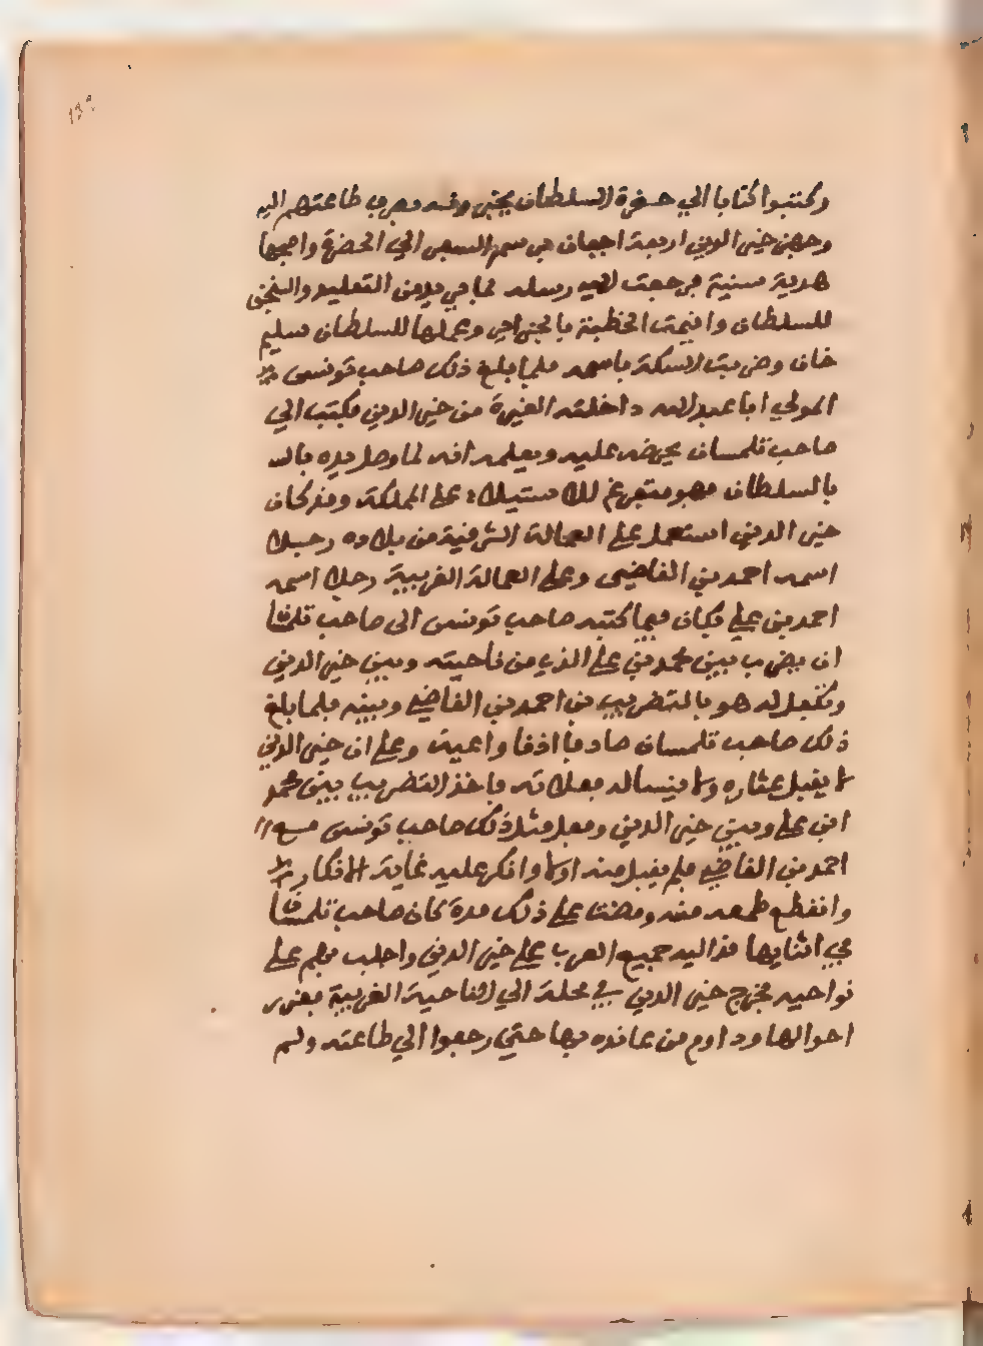 وكتبوا كتابا الي حضرة السلطان يخبرونه بصرف طاعتهم اليه
وجهز خير الدين اربعة اجفان برسم السفر الي الحضرة واصحبها
هدية سنية فرجعت اليه رسله بما في يده من التقليد والسنجق
للسلطان واقيمت الخطبة بالجزاير وعملها للسلطان سليم
خان وضربت السكة باسمه فلما بلغ ذلك صاحب تونس
المولي ابا عبد الله داخلته الغيرة من خير الدين فكتب الي
صاحب تلمسان يحرضه عليه ويعلمه انه لما وصل يده بالسـ
بالسلطان فهو متفرغ للاستيلاء على المملكة وقد كان
خير الدين استعمل على العمالة الشرقية من بلاده رجلا
اسمه احمد بن القاضي وعلى العمالة الغربية رجلا اسمه
احمد بن علي فكان فيما كتبه صاحب تونس الى صاحب تلمسان
ان يضرب بين محمد بن علي الذي من ناحيته وبين خير الدين
وتكفل له هو بالتضريب بين احمد بن القاضي وبينه فلما بلغ
ذلك صاحب تلمسان صادف اذنا واعية وعلم ان خير الدين
لا يقبل عثاره ولا ينساله فعلاته فاخذ التضريب بين محمد
ابن علي وبين خير الدين وفعل مثل ذلك صاحب تونس مع
احمد بن القاضي فلم يقبل منه اولا وانكر عليه غاية الانكار
وانقطع طمعه منه ومضت على ذلك مدة كان صاحب تلمسان
في اثنايها اليه جميع العرب على خير الدين واجلب بهم على
نواحيه فخرج خير الدين في محلة الي الناحية الغربية فقرر
احوالها وداوم من عانده بها حتي رجعوا الي طاعته ولم